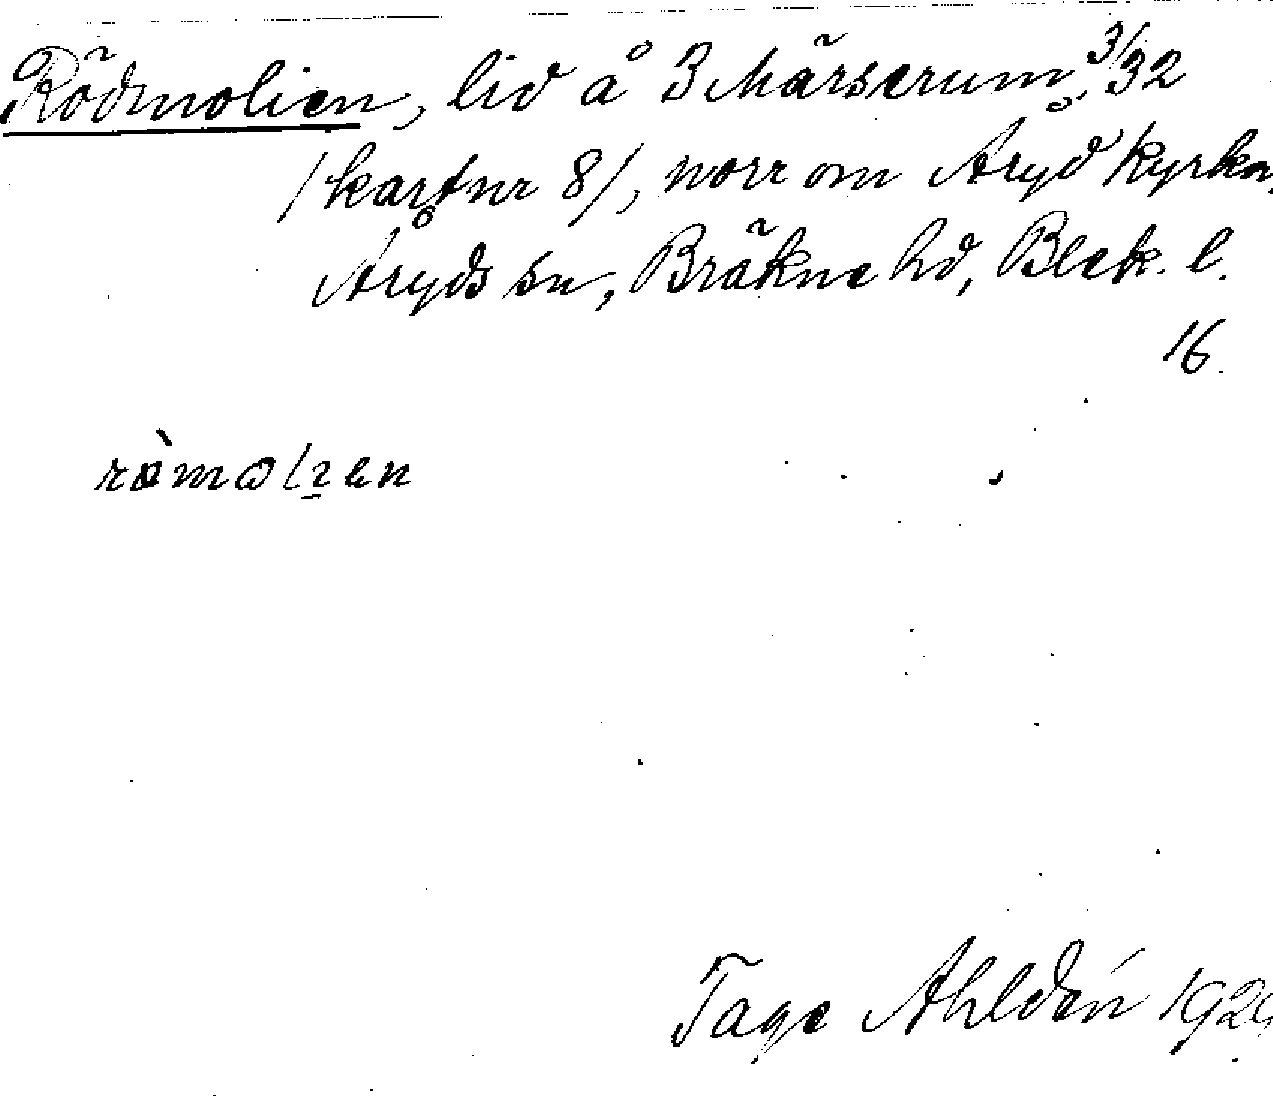 Rödmolien, lid å 3 Märserum 3/32
/kartnr 8/, norr om Åryd kyrka,
Åryds sn, Bräkne hd, Blek. l.
16.
Tage Ahldén 192